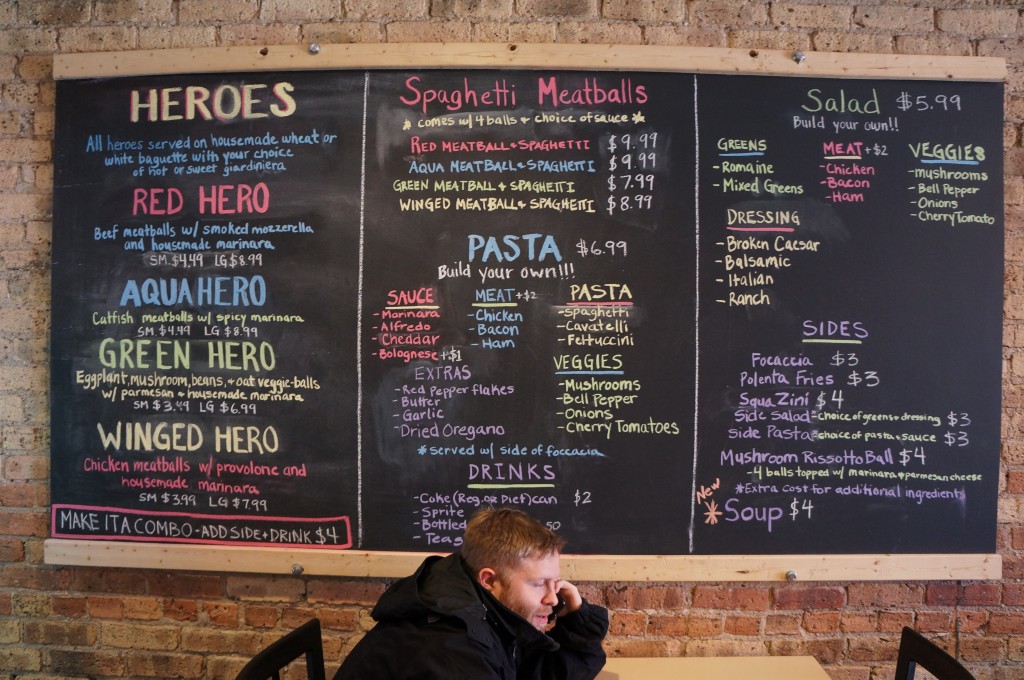 HEROES
All heroes served on housemade wheat or
white baguette with your choice
of hot or sweet giardiniera
RED HERO
Beef meatballs w/ smoked mozzerella
and housemade marinara
SM $4.49 LG $8.99
AQUA HERO
Catfish meatballs w/ spicy marinara
SM $4.49 LG $8.99
GREEN HERO
Eggplant, mushroom, beans, + oat veggie-balls
w/ parmesan + housemade marinara
SM $3.49 LG $6.99
WINGED HERO
Chicken meatballs w/ provolone and
housemade marinara
SM $3.99 LG $7.99
MAKE IT A COMBO - ADD SIDE + DRINK $4
Spaghetti Meatballs
* comes w/ 4 balls + choice of sauce *
RED MEATBALL + SPAGHETTI $9.99
AQUA MEATBALL + SPAGHETTI $9.99
GREEN MEATBALL + SPAGHETTI $7.99
WINGED MEATBALL + SPAGHETTI $8.99
PASTA $6.99
Build your own!!!
SAUCE
- Marinara
- Alfredo
- Cheddar
- Bolognese + $1
MEAT + $2
- Chicken
- Bacon
- Ham
PASTA
- Spaghetti
- Cavatelli
- Fettuccini
EXTRAS
- Red Pepper flakes
- Butter
- Garlic
- Dried Oregano
VEGGIES
- Mushrooms
- Bell Pepper
- Onions
- Cherry Tomatoes
* served w/ side of foccacia
DRINKS
- Coke (Reg. or Diet) can $2
- Sprite
- Bottled 50
- Teas
Salad $5.99
Build your own!!
GREENS
- Romaine
- Mixed Greens
MEAT + $2
- Chicken
- Bacon
- Ham
VEGGIES
- mushrooms
- Bell Pepper
- Onions
- Cherry Tomato
DRESSING
- Broken Caesar
- Balsamic
- Italian
- Ranch
SIDES
Focaccia $3
Polenta Fries $3
Squa Zini $4
Side Salad - choice of greens + dressing $3
Side Pasta - choice of pasta + sauce $3
Mushroom Rissotto Ball $4
- 4 balls topped w/ marinara + parmesan cheese
* Extra cost for additional ingredients
New
* Soup $4